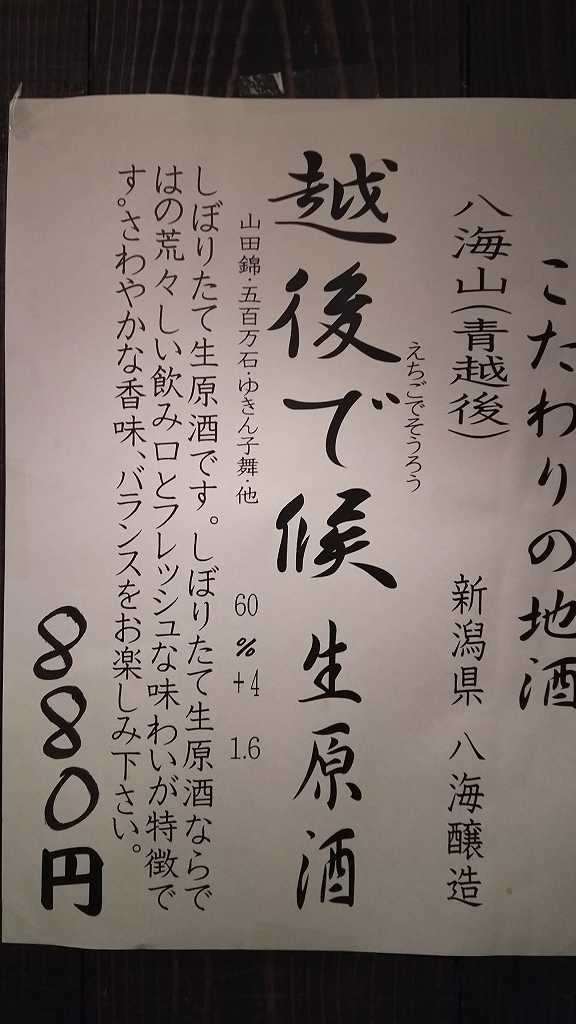 こだわりの地酒
八海山(青越後) 新潟県 八海醸造
えちごでそうろう
越後で候 生原酒
山田錦・五百万石・ゆきん子舞・他 60% +4 1.6
しぼりたて生原酒です。しぼりたて生原酒ならで
はの荒々しい飲み口とフレッシュな味わいが特徴で
す。さわやかな香味、バランスをお楽しみ下さい。
880円